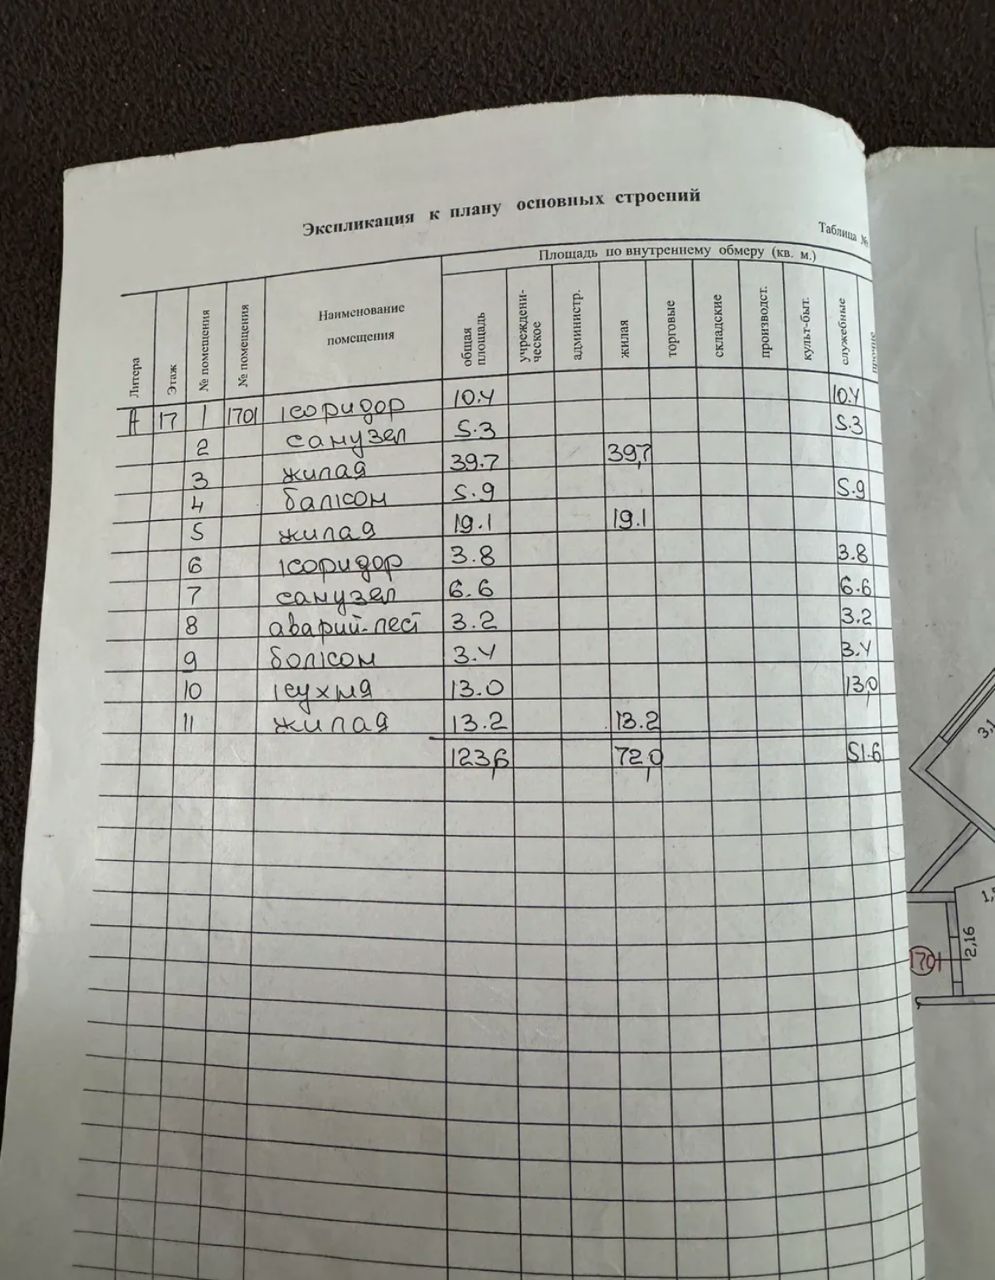 Экспликация к плану основных строений
Таблица №
Площадь по внутреннему обмеру (кв. м.)
Литера Этаж № помещения № помещения Наименование помещения общая площадь учреждени-ческое администр. жилая торговые складские производст. культ-быт. служебные прочие
А 17 1 1701 коридор 10.4 10.4
2 санузел 5.3 5.3
3 жилая 39.7 39,7
4 балкон 5.9 5.9
5 жилая 19.1 19.1
6 коридор 3.8 3.8
7 санузел 6.6 6.6
8 аварий-лест 3.2 3.2
9 болкон 3.4 3.4
10 кухня 13.0 13,0
11 жилая 13.2 13.2
123,6 72,0 51.6
3,1
2,16
1701